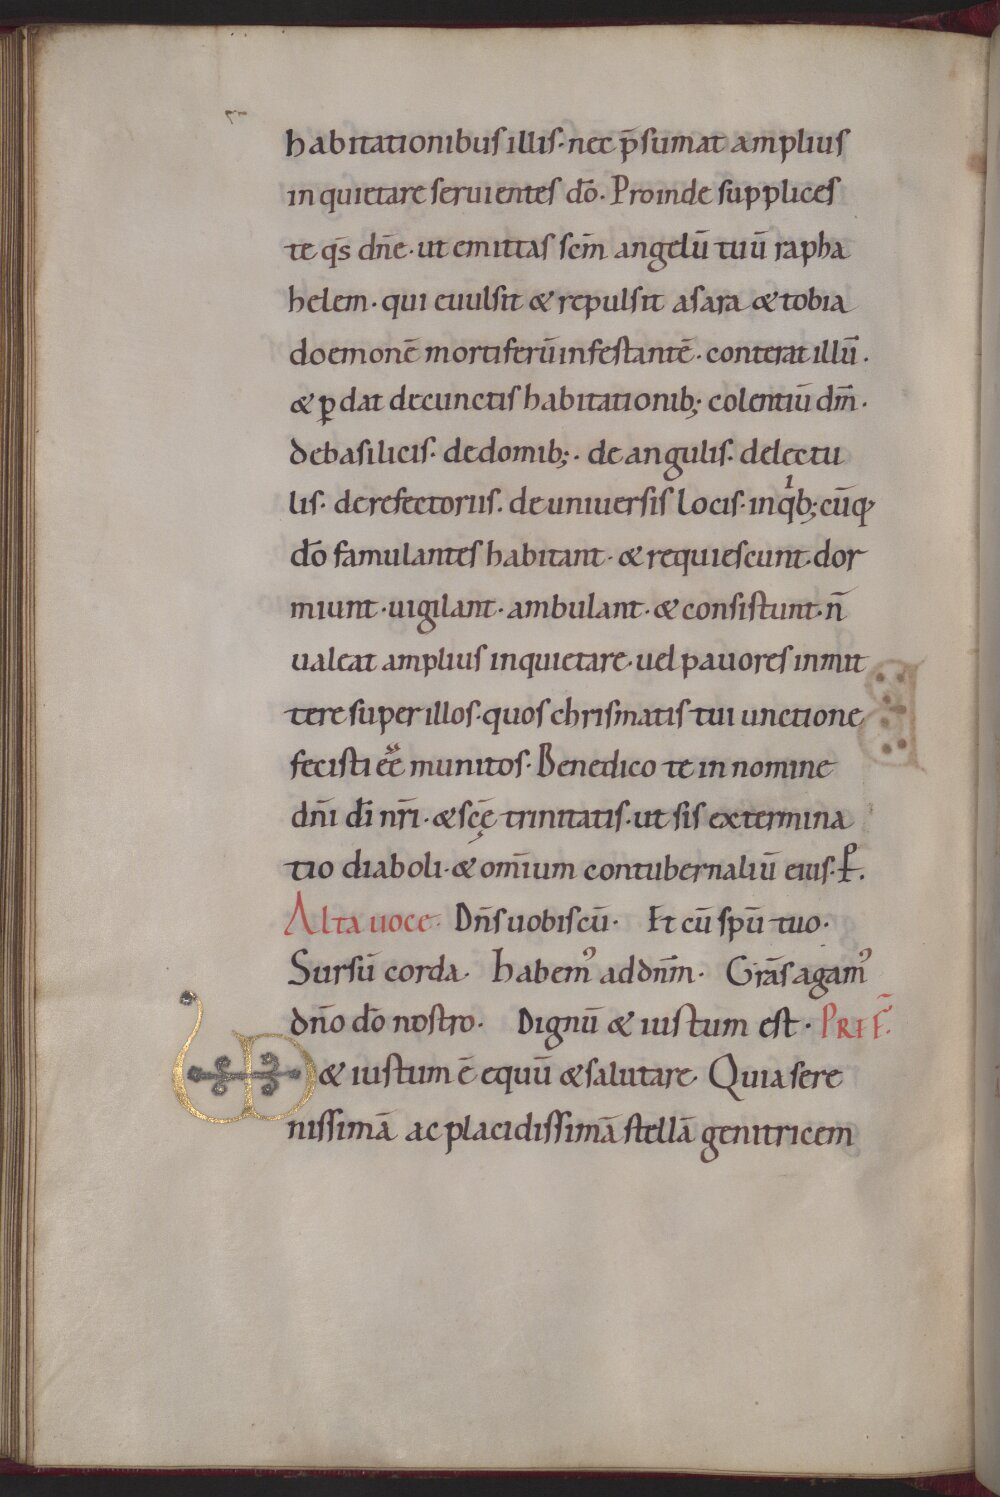 habitationibus illis· nec p̄sumat amplius
inquietare seruientes dō. Proinde supplices
te q̄s dn̄e· ut emittas scm̄ angelū tuū rapha
helem· qui euulsit & repulsit a sara & tobia
doemonē mortiferū infestantē· conterat illū·
& ꝑdat de cunctis habitationib; colentiū dm̄·
de basilicis· de domib;· de angulis· de lectu
lis· de refectoriis· de uniuersis locis· in qⁱb; cūq;
dō famulantes habitant· & requiescunt· dor
miunt· uigilant· ambulant· & consistunt· n̄
ualeat amplius inquietare· uel pauores inmit
tere super illos· quos chrismatis tui unctione
fecisti eē munitos· Benedico te in nomine
dn̄i dī nr̄i· & scę̄ trinitatis· ut sis extermina
tio diaboli· & om̄ium contubernaliū eius· P̱.
Alta uoce· Dn̄s uobiscū· Et cū spū tuo·
Sursū corda· Habemꝰ ad dn̄m· Grās agamꝰ
dn̄o dō nostro· Dignū & iustum est· PREF̄·
UD & iustum ē equū & salutare· Quia sere
nissimā ac placidissimā stellā genitricem